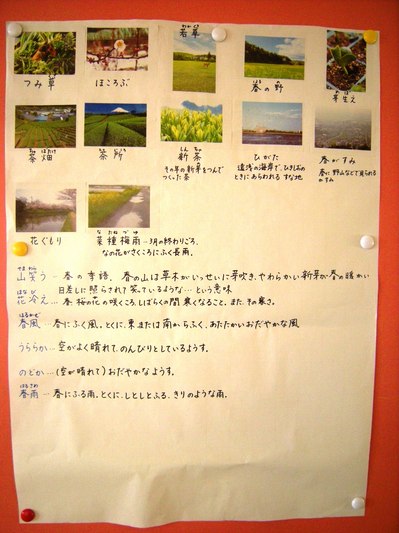 つみ草
ほころぶ
若草
わかくさ
春の野
芽生え
茶畑
茶所
新茶
しんちゃ
その年の新芽をつんで
つくった茶
ひがた
遠浅の海岸で、ひきしおの
ときにあらわれる すな地
春がすみ
春に野山などで見られる
かすみ
花ぐもり
菜種梅雨 - 3月の終わりごろ、
なたねづゆ
なの花がさくころにふく長雨。
やまわら
山笑う - 春の季語。 春の山は草木がいっせいに芽吹き、やわらかい新芽が春の暖かい
日差しに照らされて笑っているような…という意味
はなび
花冷え… 春 桜の花の咲くころ、しばらくの間 寒くなること。また、その寒さ。
はるかぜ
春風 - 春にふく風。とくに、東または南からふく、あたたかいおだやかな風
うららか… 空がよく晴れて、のんびりとしているようす。
のどか… (空が晴れて)おだやかなようす。
はるさめ
春雨 - 春にふる雨。とくに、しとしとふる、きりのような雨。